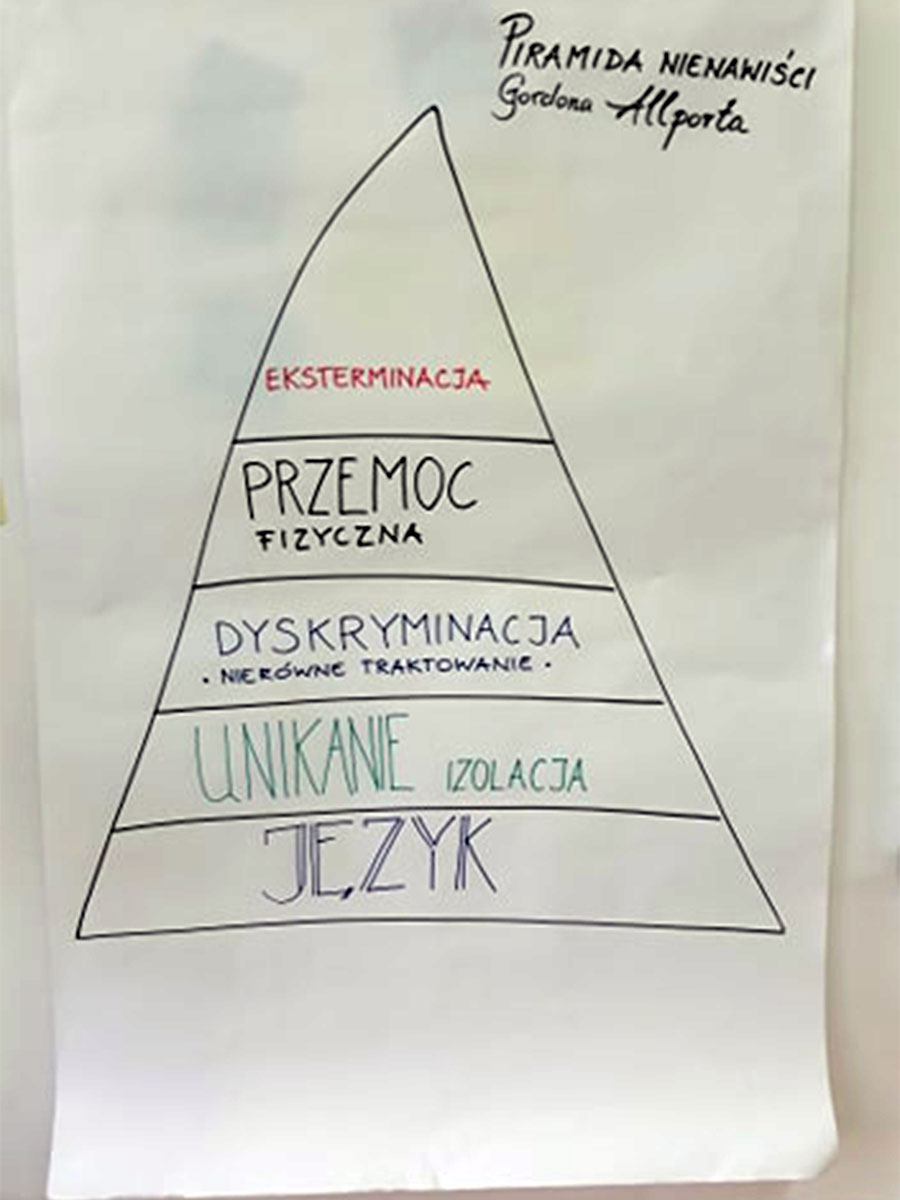 PIRAMIDA NIENAWIŚCI
Gordona Allporta
EKSTERMINACJA
PRZEMOC
FIZYCZNA
DYSKRYMINACJA
· NIERÓWNE TRAKTOWANIE ·
UNIKANIE IZOLACJA
JĘZYK